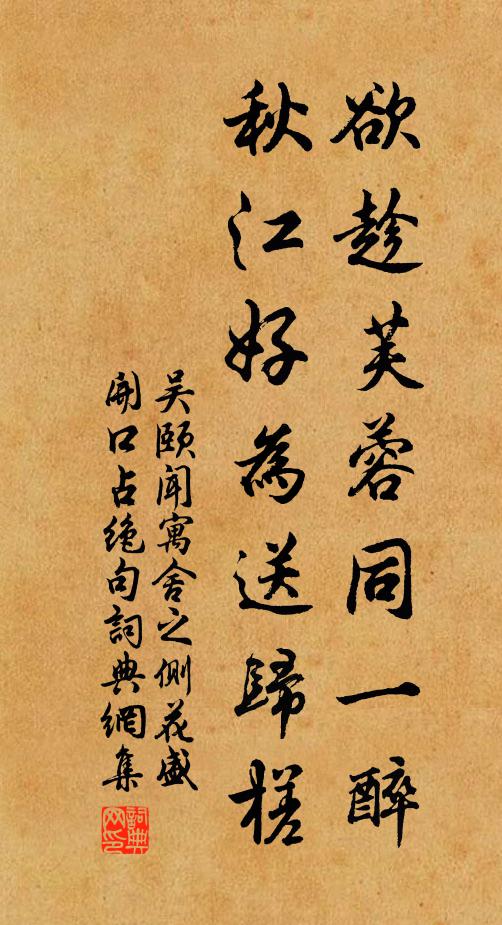 欲趁芙蓉同一醉
秋江好為送歸槎
吴頤聞寓舍之側花盛
開口占絶句詞典網集
詞典网印